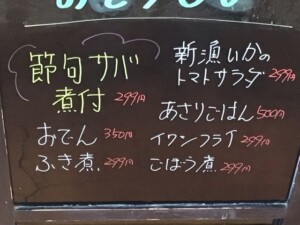 節句サバ
煮付 299円
おでん 350円
ふき煮 299円
新漁いかの
トマトサラダ 299円
あさりごはん 500円
イワシフライ 299円
ごぼう煮 299円